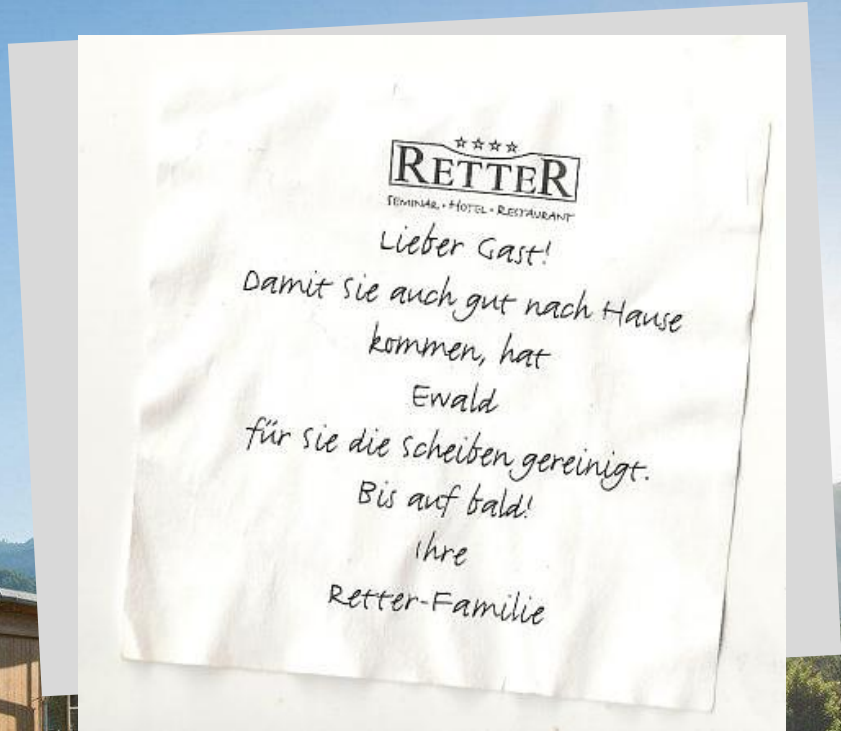 RETTER
SEMINAR • HOTEL • RESTAURANT
Lieber Gast!
Damit Sie auch gut nach Hause
kommen, hat
Ewald
für Sie die Scheiben gereinigt.
Bis auf bald!
Ihre
Retter-Familie